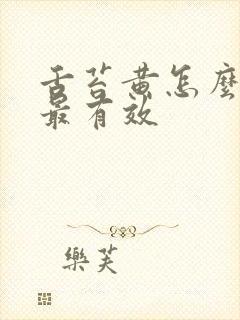 舌苔黄怎麼
最有效
樂芙